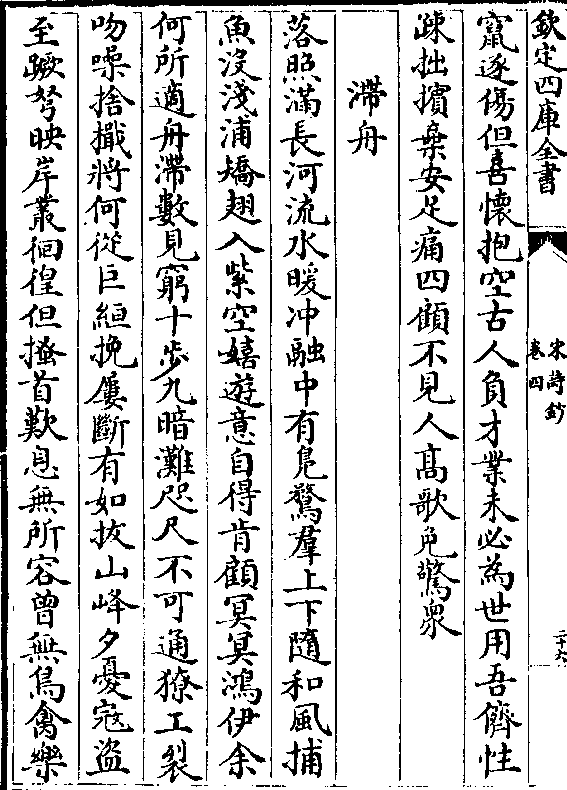 欽定四庫全書
宋詩鈔
卷四
二十六
竄逐傷但喜懷抱空古人負才業未必為世用吾儕性
疎拙擯棄安足痛四顧不見人髙歌免驚衆
滯舟
落照滿長河流水暖冲融中有鳬驚羣上下隨和風捕
魚没淺浦矯翅入紫空嬉遊意自得肯顧冥冥鴻伊余
何所適舟滯數見窮十步九暗灘咫尺不可通獠工裂
吻噪捨檝將何從巨絙挽屢斷有如拔山峰夕憂宼盜
至蹶弩映岸叢徊徨但搔首歎息無所容曾無鳥禽樂